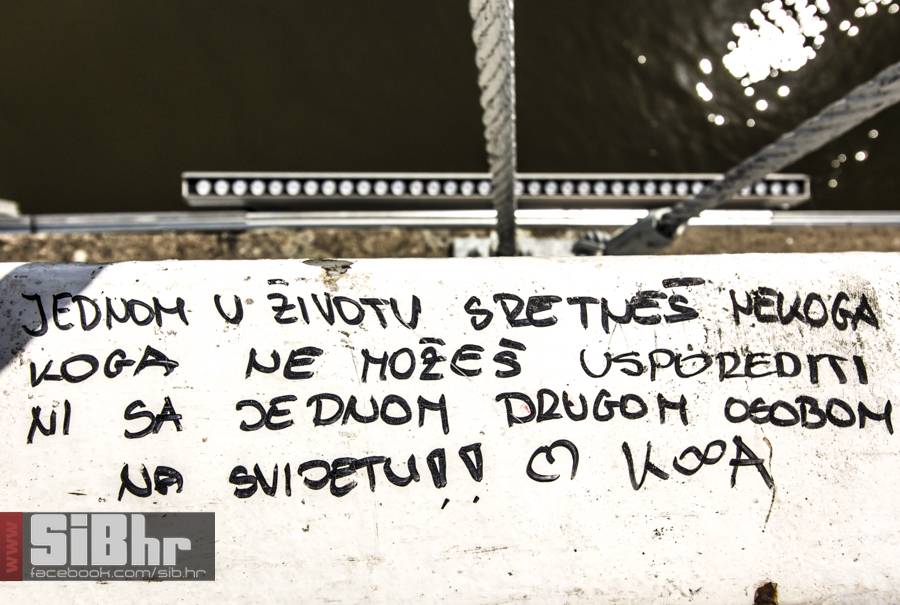 JEDNOM U ŽIVOTU SRETNEŠ NEKOGA
KOGA NE MOŽEŠ USPOREDITI
NI SA JEDNOM DRUGOM OSOBOM
NA SVIJETU!! ♡ K∞A
www SiBhr
facebook.com/sib.hr